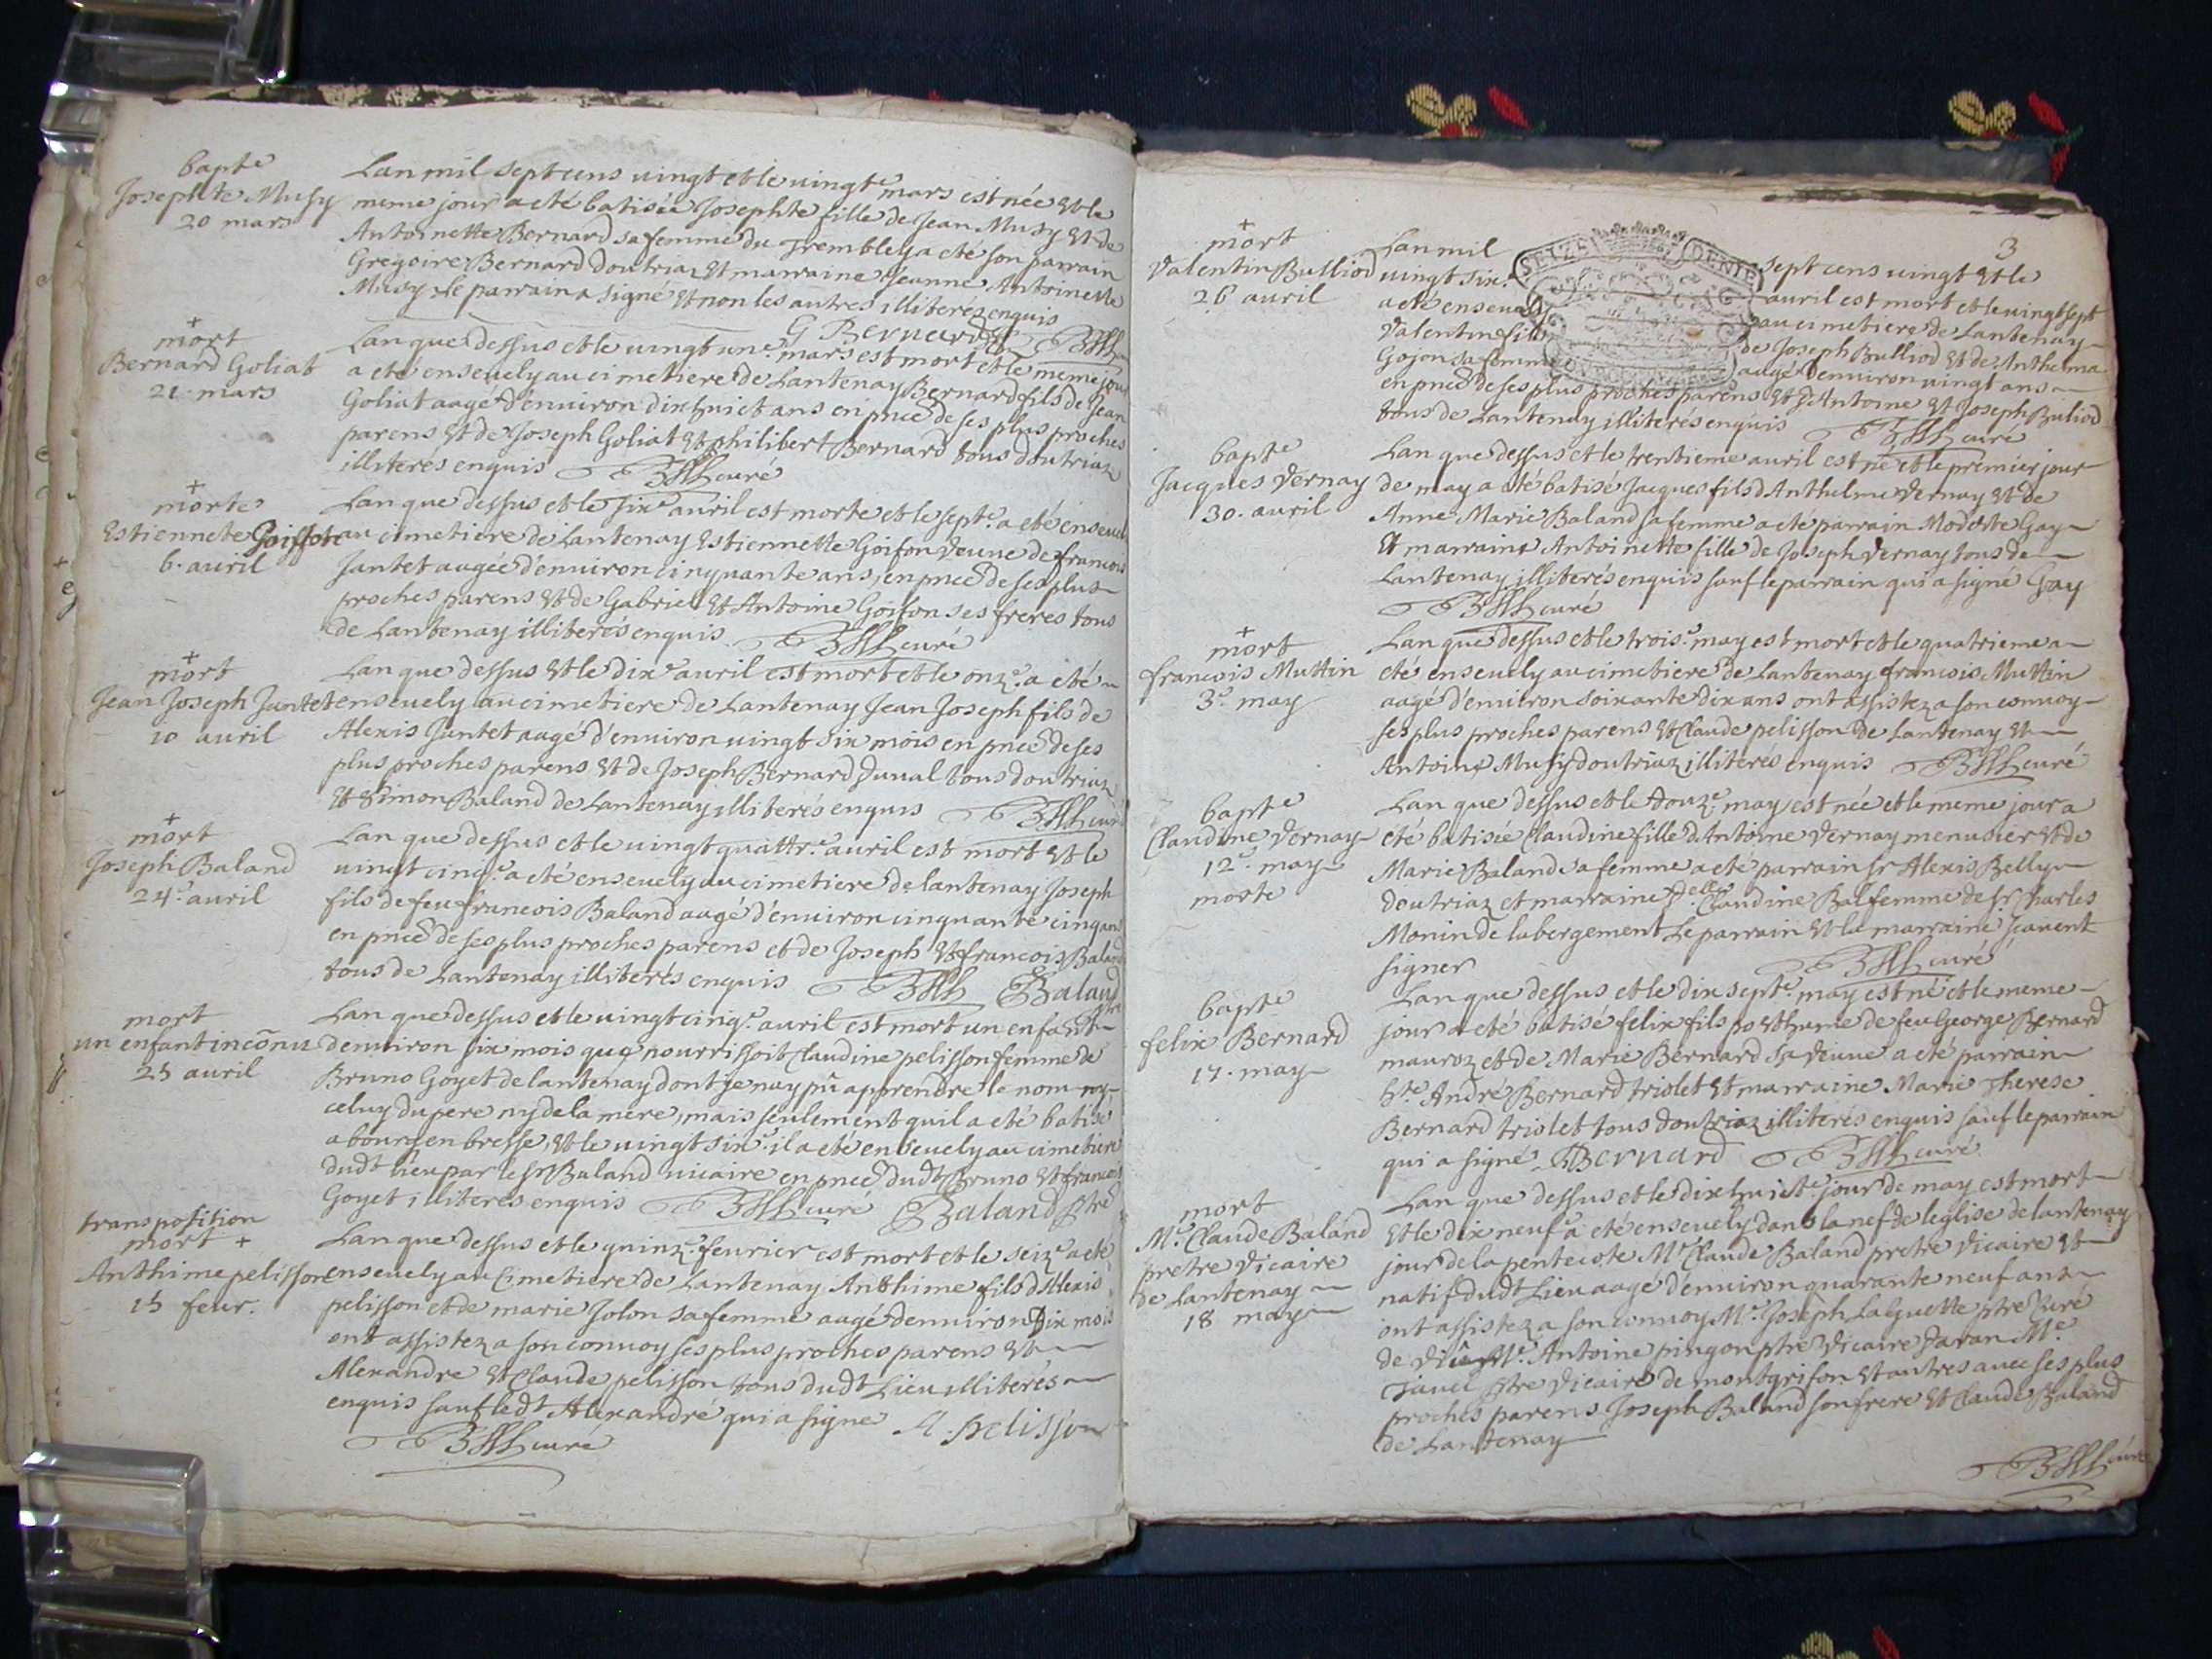 bapt.e
Josephte Musy
20 mars
Lan mil sept cens vingt et le vingt.e mars est née et le
meme jour a eté batisée Josephte fille de Jean Musy et de
Antoinette Bernard sa femme du Trembley a eté son parrain
Gregoire Bernard doutriaz et marraine Jeanne Antoinette
Musy Le parrain a signé et non les autres illiterés enquis
G Bernard
+
mort
Bernard Goliat
21. mars
Lan que dessus et le vingt un.e mars est mort et le meme jour
a eté ensevely au cimetiere de Lantenay Bernard fils de Jean
Goliat aagé d'environ dix huict ans en pnce de ses plus proches
parens et de Joseph Goliat et philibert Bernard tous doutriaz
illiterés enquis curé
+
morte
Estiennete Goiffon
6. avril
Lan que dessus et le six.e avril est morte et le sept.e a eté ensevel
au cimetiere de Lantenay Estiennette Goifon veuve de francois
Jantet aagée d'environ cinquante ans, en pnce de ses plus
proches parens et de Gabriel et Antoine Goifon ses freres tous
de Lantenay illiterés enquis curé
+
mort
Jean Joseph Jantet
10 avril
Lan que dessus et le dix.e avril est mort et le onz.e a eté
ensevely au cimetiere de Lantenay Jean Joseph fils de
Alexis Jantet aagé d'environ vingt six mois en pnce de ses
plus proches parens et de Joseph Bernard Duval tous doutriaz
et Simon Baland de Lantenay illiterés enquis curé
+
mort
Joseph Baland
24.e avril
Lan que dessus et le vingt quattr.e avril est mort et le
vingt cinq.e a eté ensevely au cimetiere de lantenay Joseph
fils de feu francois Baland aagé d'environ cinquante cinq ans
en pnce de ses plus proches parens et de Joseph et francois Baland
tous de Lantenay illiterés enquis Baland
mort
un enfant incõnu
25 avril
Lan que dessus et le vingt cinq.e avril est mort un enfant
denviron six mois que nourrissoit Claudine pelisson femme de
Bruno Goyet de lantenay dont je nay pû apprendre le nom ny
celuy du pere ny de la mere, mais seulement quil a eté batisé
a bourg en bresse, et le vingt six.e il a eté ensevely au cimetiere
dudt lieu par le sr Baland vicaire en pnce dudt Bruno et francois
Goyet illiterés enquis curé Baland ptre
transposition
mort +
Anthime pelisson
15 fevr.
Lan que dessus et le quinz.e fevrier est mort et le seiz.e a eté
ensevely au Cimetiere de Lantenay Anthime fils d'Alexis
pelisson et de marie Jolon sa femme aagé denviron Dix mois
ont assistez a son convoy ses plus proches parens et
Alexandre et Claude pelisson tous dudt Lieu illiterés
enquis sauf ledt Alexandre qui a signé A. pelisson
curé
3
+
mort
Valentin Bulliod
26 avril
SEIZE DENIE
Lan mil sept cens vingt et le
vingt six.e avril est mort et le vingt sept
a eté ensevely au cimetiere de Lantenay
Valentin fils de Joseph Bulliod et de Anthelma
Gojon sa femme aagé denviron vingt ans
en pnce de ses plus proches parens et d'Antoine et Joseph Buliod
tous de Lantenay illiterés enquis curé
bapt.e
Jacques Vernay
30. avril
Lan que dessus et le trentieme avril est né et le premier jour
de may a eté batisé Jacques fils d'Anthelme Vernay et de
Anne Marie Baland sa femme a eté parrain Modeste Gay
et marraine Antoinette fille de Joseph Vernay tous de
Lantenay illiterés enquis sauf le parrain qui a signé Gay
curé
+
mort
francois Muttin
3.e may
Lan que dessus et le trois.e may est mort et le quatrieme a
eté ensevely au cimetiere de Lantenay francois Muttin
aagé d'environ soixante dix ans ont assistez a son convoy
ses plus proches parens et Claude pelisson de Lantenay et
Antoine Musy doutriaz illiterés enquis curé
bapt.e
Claudine Vernay
12.e may
morte
Lan que dessus et le douz.e may est née et le meme jour a
eté batisée Claudine fille d'Antoine Vernay menusier et de
Marie Baland sa femme a eté parrain sr Alexis Belly
doutriaz et marraine d.elle Claudine Bal femme de sr Charles
Monin de labergement Le parrain et la marraine scavent
signer curé
bapt.e
felix Bernard
17. may
Lan que dessus et le dix sept.e may est né et le meme
jour a eté batisé felix fils posthume de feu George Bernard
mauroz et de Marie Bernard sa veuve a eté parrain
h.te André Bernard triolet et marraine Marie Therese
Bernard triolet tous doutriaz illiterés enquis sauf le parrain
qui a signé Bernard curé
mort
M.e Claude Baland
pretre vicaire
de Lantenay
18 may
Lan que dessus et le dix huict.e jour de may est mort
et le dix neuf.e a eté ensevely dans la nef de leglise de lantenay
jour de la pentecote M.e Claude Baland pretre vicaire et
natif dudt Lieu aagé d'environ quarante neuf ans
ont assistez a son convoy M.e Joseph Laguette ptre curé
de M.e Antoine pingon ptre vicaire M.e
ptre vicaire de montgrifon et autres avec ses plus
proches parens Joseph Baland son frere et Claude Baland
de Lantenay
curé